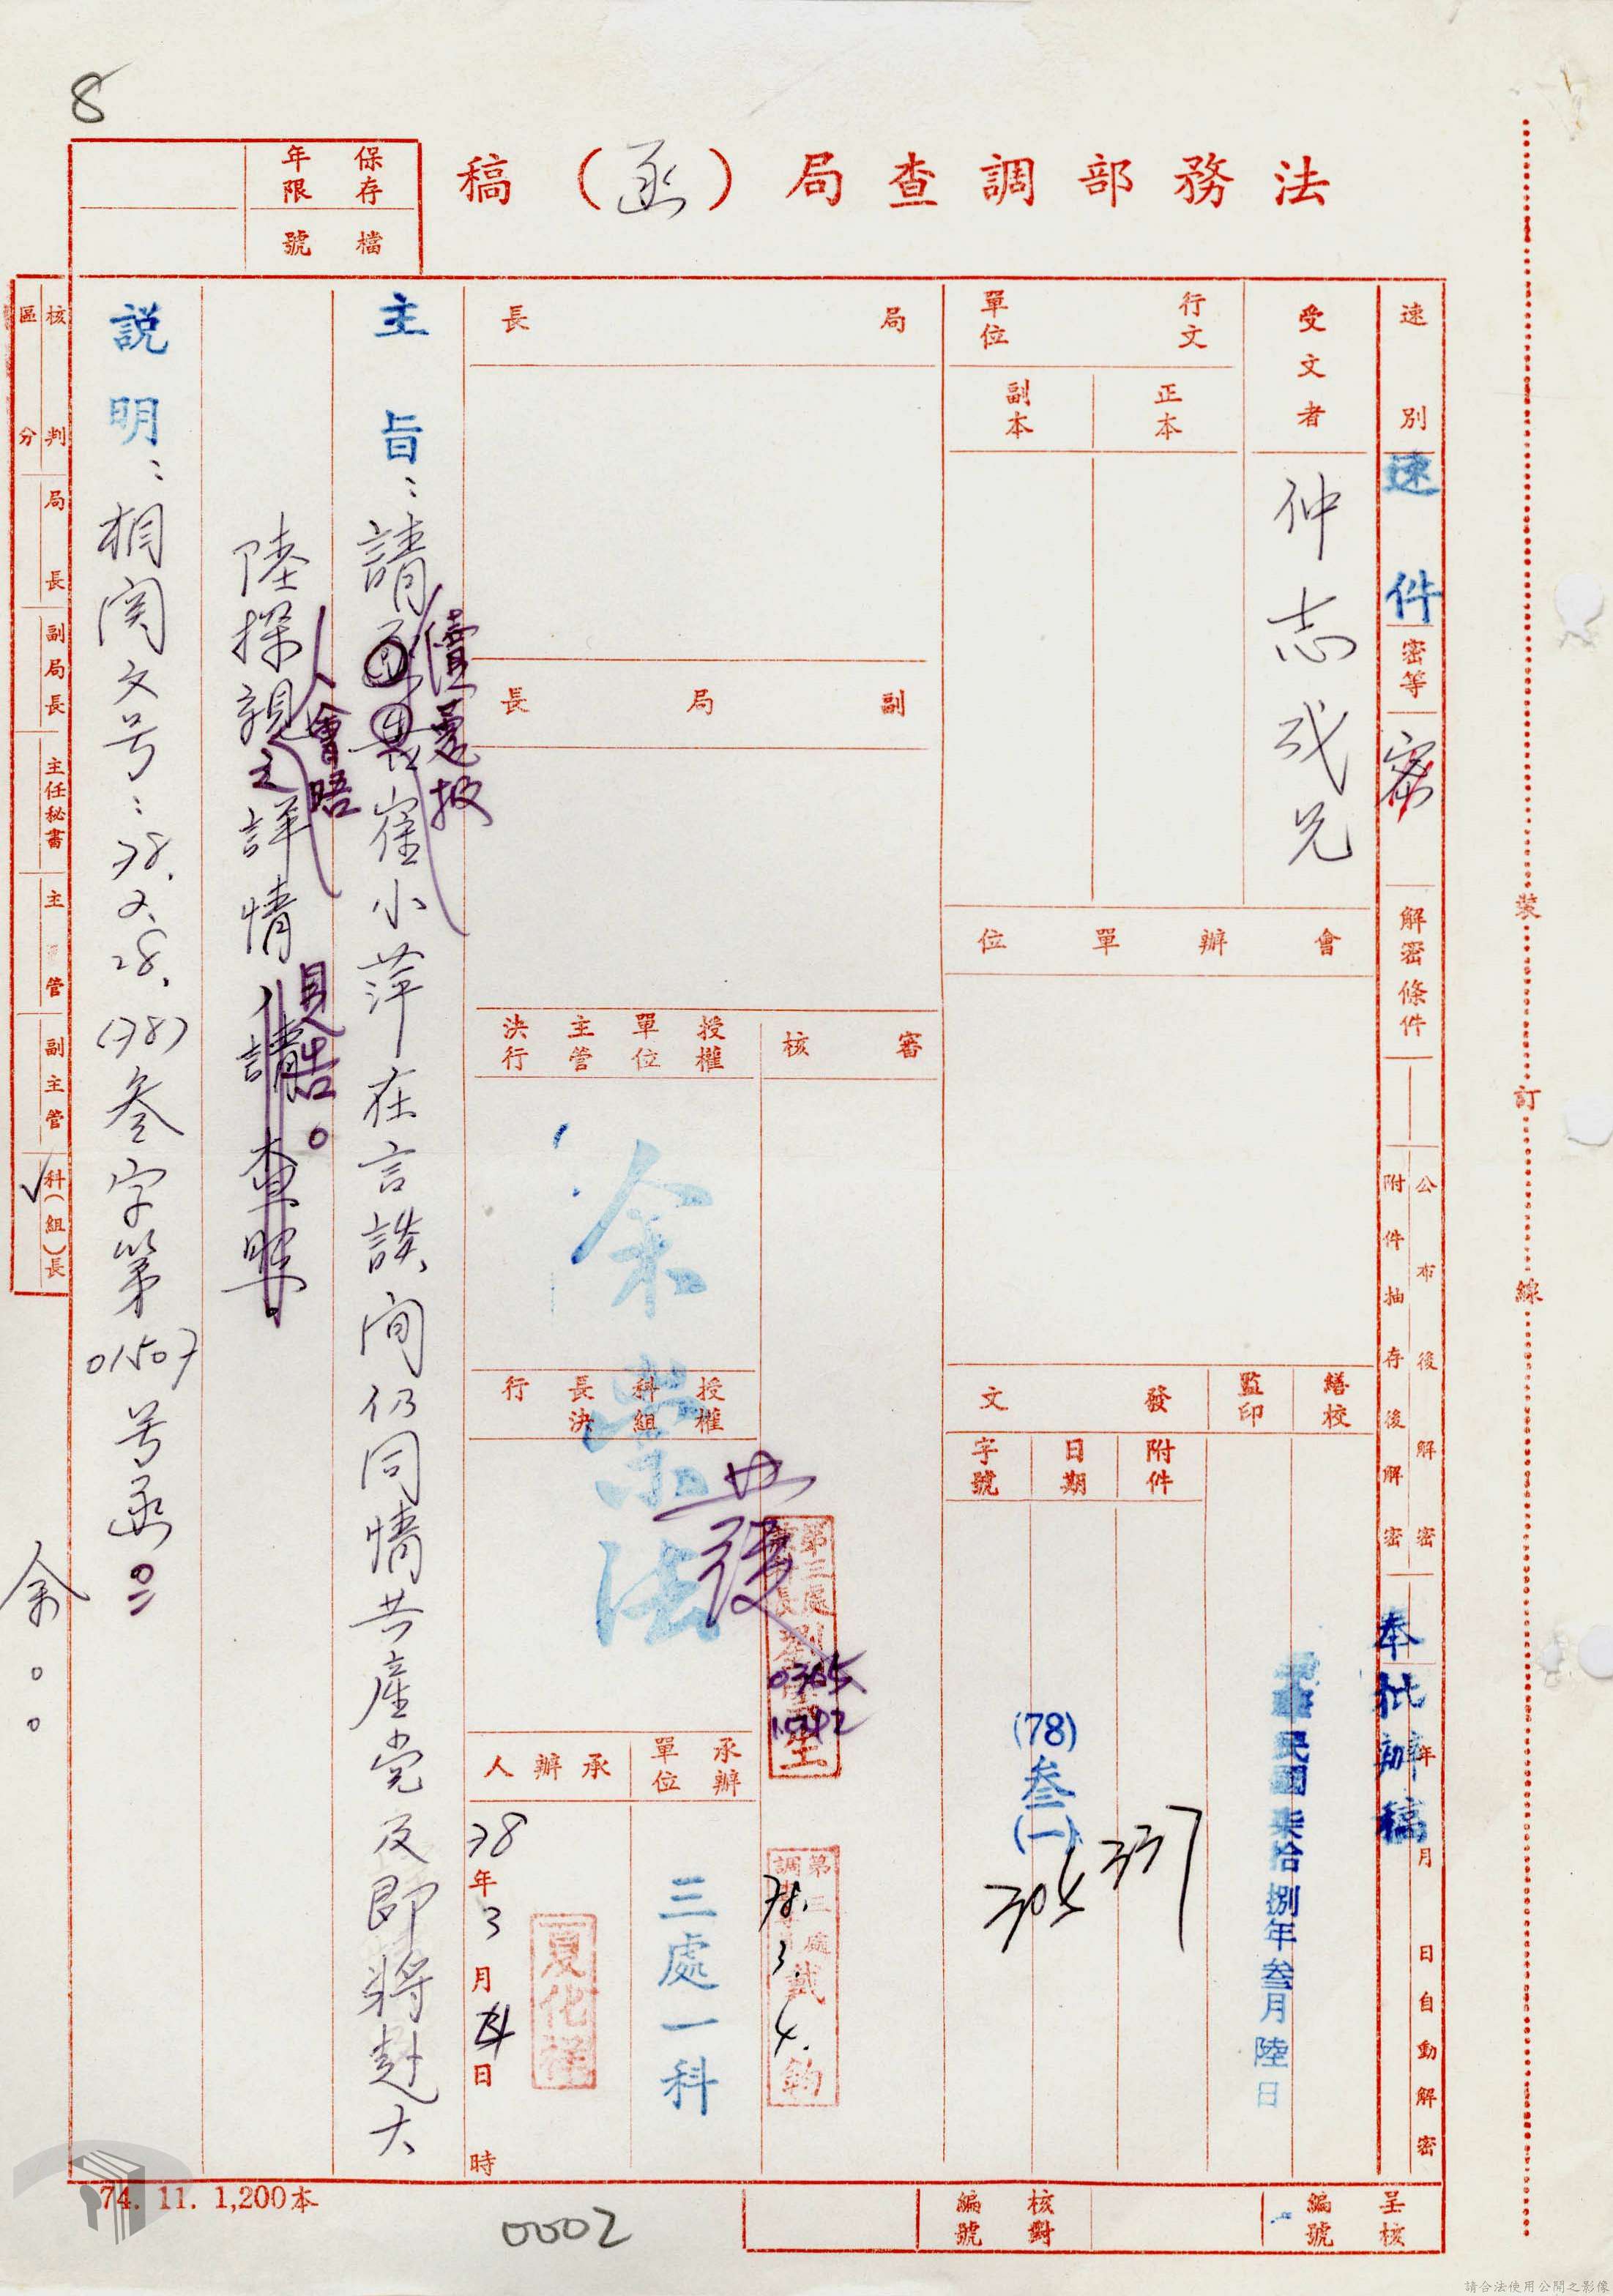 8
法務部調查局（函）稿
保存年限
檔號
速別
速件
密等
密
解密條件
公布後解密
附件抽存後解密
年月日自動解密
奉批辦稿
受文者
仲志成兄
行文單位
正本
副本
會辦單位
繕校
監印
發文
附件
日期
字號
民國柒拾捌年叁月陸日
(78)叁(一)
337
304
局長
副局長
審核
授權單位主管決行
余崇法
授權科組長決行
發
0305
第三處
承辦單位
三處一科
承辦人
夏化祥
第三處
戴鈞
78.3.4.
78年3月4日
時
主旨：請
崔小萍在言談間仍同情共產党及即將赴大
續蒐報
陸探親之詳情，請查照。
人會晤
見告。
説明：相関文号：78.2.28.(78)叁字第01507号函。
核判區分
局長
副局長
主任秘書
主管
副主管
科（組）長
√
余。。
裝訂線
74. 11. 1,200本
0002
核對編號
呈核編號
請合法使用公開之影像